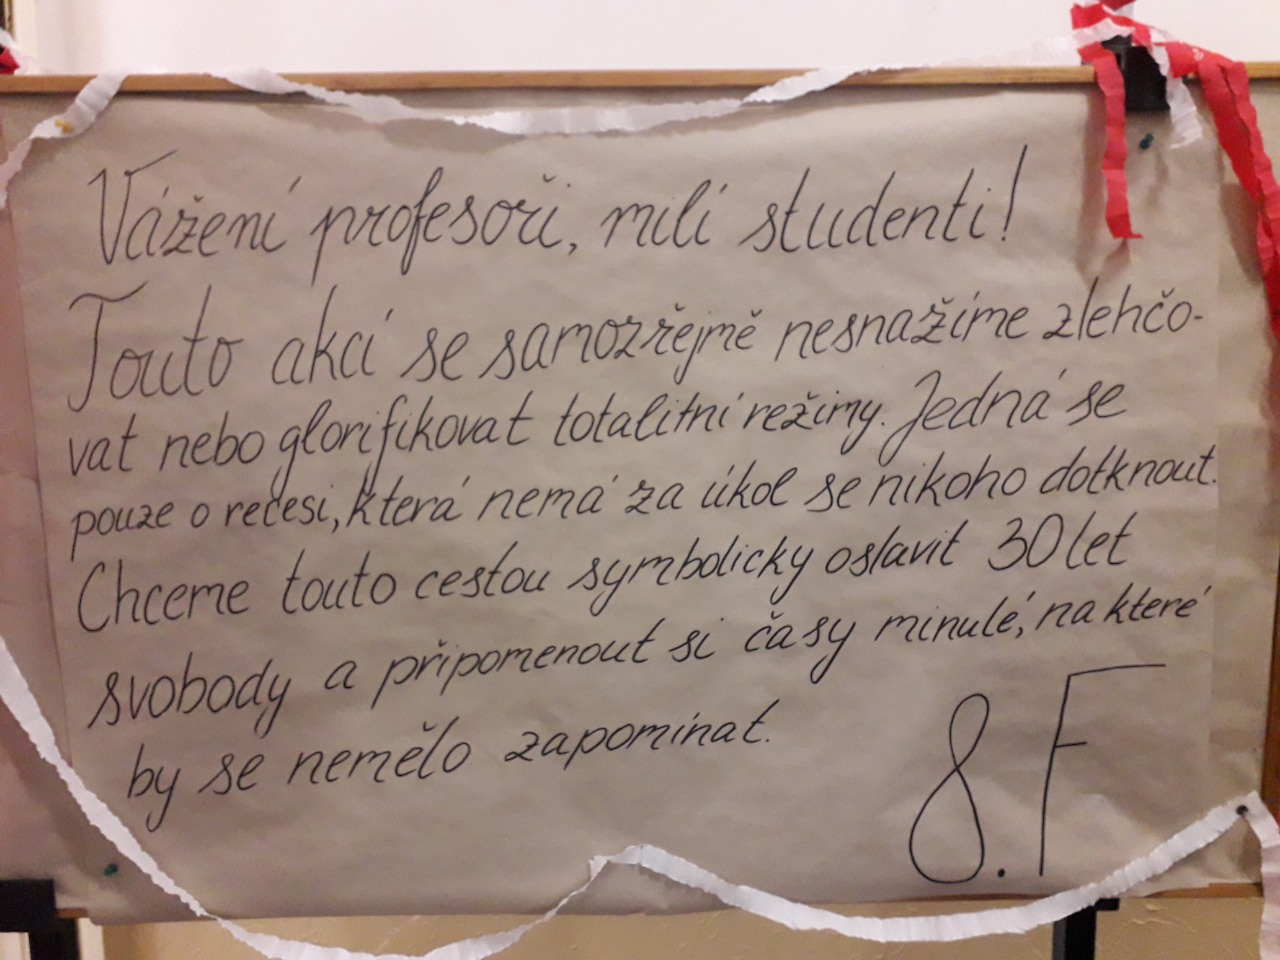 Vážení profesoři, milí studenti!
Touto akcí se samozřejmě nesnažíme zlehčo-
vat nebo glorifikovat totalitní režimy. Jedná se
pouze o recesi, která nemá za úkol se nikoho dotknout.
Chceme touto cestou symbolicky oslavit 30 let
svobody a připomenout si časy minulé, na které
by se nemělo zapomínat.
8.F